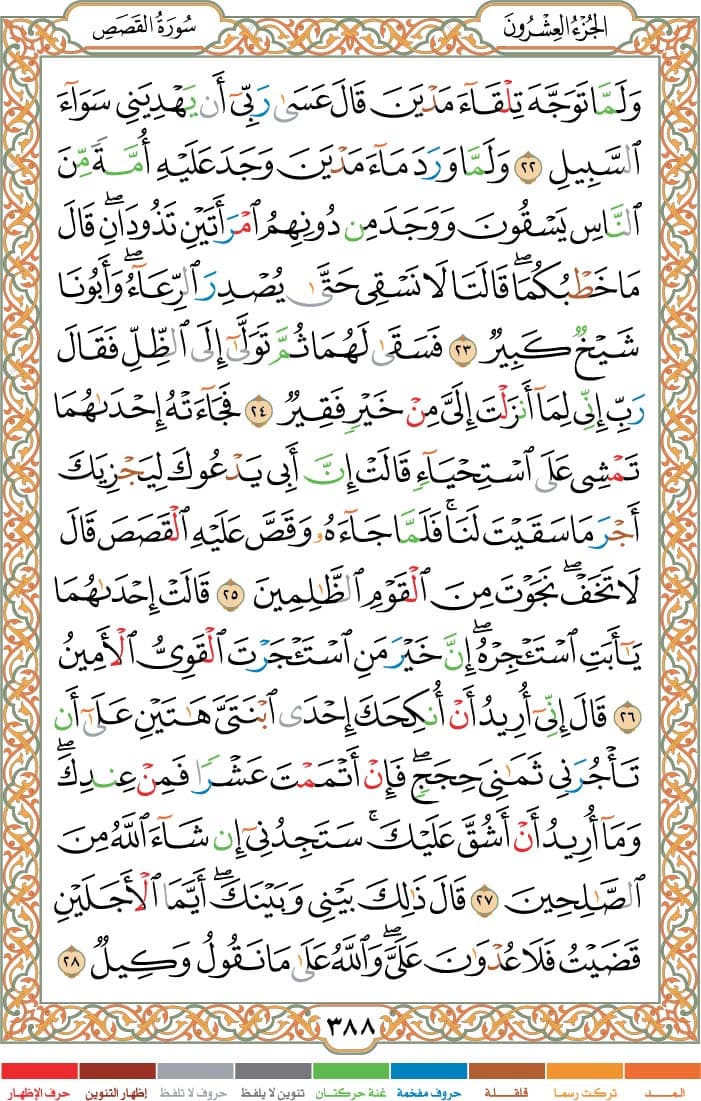 الجُزْءُ العِشْرُونَ
سُورَةُ القَصَصِ
وَلَمَّا تَوَجَّهَ تِلْقَآءَ مَدْيَنَ قَالَ عَسَىٰ رَبِّىٓ أَن يَهْدِيَنِى سَوَآءَ
ٱلسَّبِيلِ ٢٢ وَلَمَّا وَرَدَ مَآءَ مَدْيَنَ وَجَدَ عَلَيْهِ أُمَّةً مِّنَ
ٱلنَّاسِ يَسْقُونَ وَوَجَدَ مِن دُونِهِمُ ٱمْرَأَتَيْنِ تَذُودَانِ ۖ قَالَ
مَا خَطْبُكُمَا ۖ قَالَتَا لَا نَسْقِى حَتَّىٰ يُصْدِرَ ٱلرِّعَآءُ ۖ وَأَبُونَا
شَيْخٌ كَبِيرٌ ٢٣ فَسَقَىٰ لَهُمَا ثُمَّ تَوَلَّىٰٓ إِلَى ٱلظِّلِّ فَقَالَ
رَبِّ إِنِّى لِمَآ أَنزَلْتَ إِلَىَّ مِنْ خَيْرٍ فَقِيرٌ ٢٤ فَجَآءَتْهُ إِحْدَىٰهُمَا
تَمْشِى عَلَى ٱسْتِحْيَآءٍ قَالَتْ إِنَّ أَبِى يَدْعُوكَ لِيَجْزِيَكَ
أَجْرَ مَا سَقَيْتَ لَنَا ۚ فَلَمَّا جَآءَهُۥ وَقَصَّ عَلَيْهِ ٱلْقَصَصَ قَالَ
لَا تَخَفْ ۖ نَجَوْتَ مِنَ ٱلْقَوْمِ ٱلظَّـٰلِمِينَ ٢٥ قَالَتْ إِحْدَىٰهُمَا
يَـٰٓأَبَتِ ٱسْتَـْٔجِرْهُ ۖ إِنَّ خَيْرَ مَنِ ٱسْتَـْٔجَرْتَ ٱلْقَوِىُّ ٱلْأَمِينُ
٢٦ قَالَ إِنِّىٓ أُرِيدُ أَنْ أُنكِحَكَ إِحْدَى ٱبْنَتَىَّ هَـٰتَيْنِ عَلَىٰٓ أَن
تَأْجُرَنِى ثَمَـٰنِىَ حِجَجٍ ۖ فَإِنْ أَتْمَمْتَ عَشْرًا فَمِنْ عِندِكَ ۖ
وَمَآ أُرِيدُ أَنْ أَشُقَّ عَلَيْكَ ۚ سَتَجِدُنِىٓ إِن شَآءَ ٱللَّهُ مِنَ
ٱلصَّـٰلِحِينَ ٢٧ قَالَ ذَٰلِكَ بَيْنِى وَبَيْنَكَ ۖ أَيَّمَا ٱلْأَجَلَيْنِ
قَضَيْتُ فَلَا عُدْوَٰنَ عَلَىَّ ۖ وَٱللَّهُ عَلَىٰ مَا نَقُولُ وَكِيلٌ ٢٨
٣٨٨
المـــد تركت رسما قلقـلة حروف مفخمة غنة حركتان تنوين لا يلفظ حروف لا تلفظ إظهار التنوين حرف الإظهار